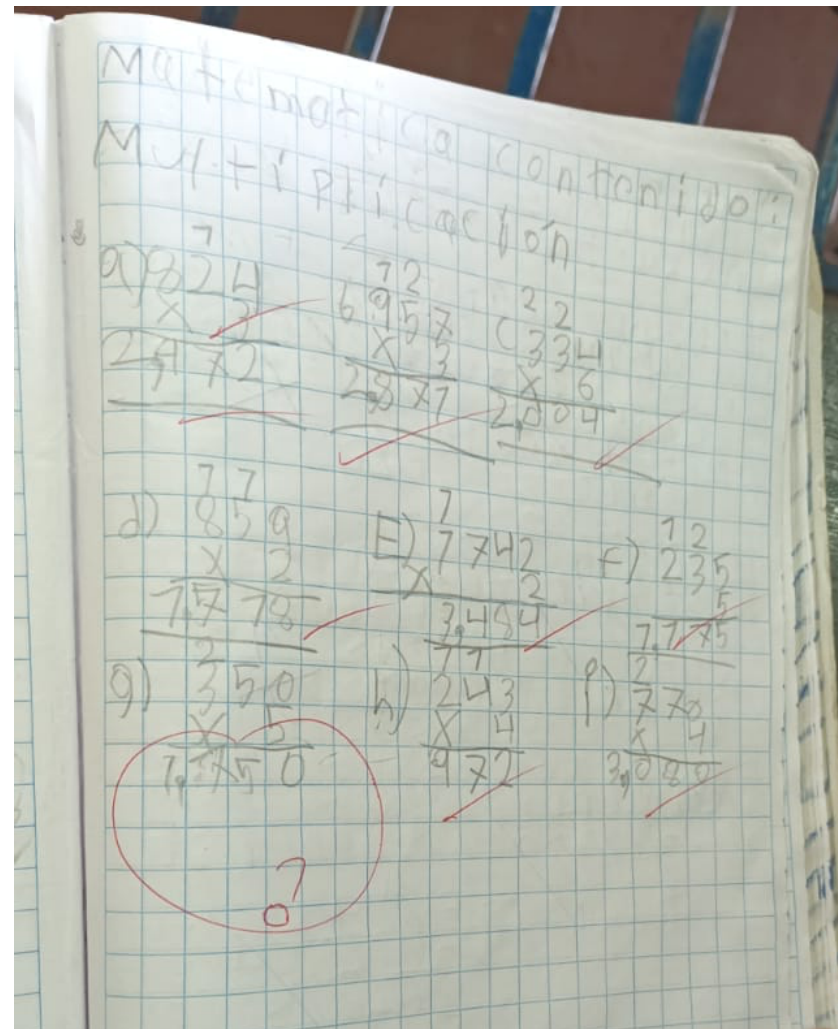 Matematica contenido:
Multiplicación
1
a) 824
x 3
2,472
12
b 957
x 3
2,871
22
c 334
x 6
2,004
11
d) 859
x 2
1,718
1
E) 1742
x 2
3,484
12
f) 235
5
1,175
2
g) 350
x 5
1,750
?
11
h) 243
x 4
972
2
770
x 4
3,080